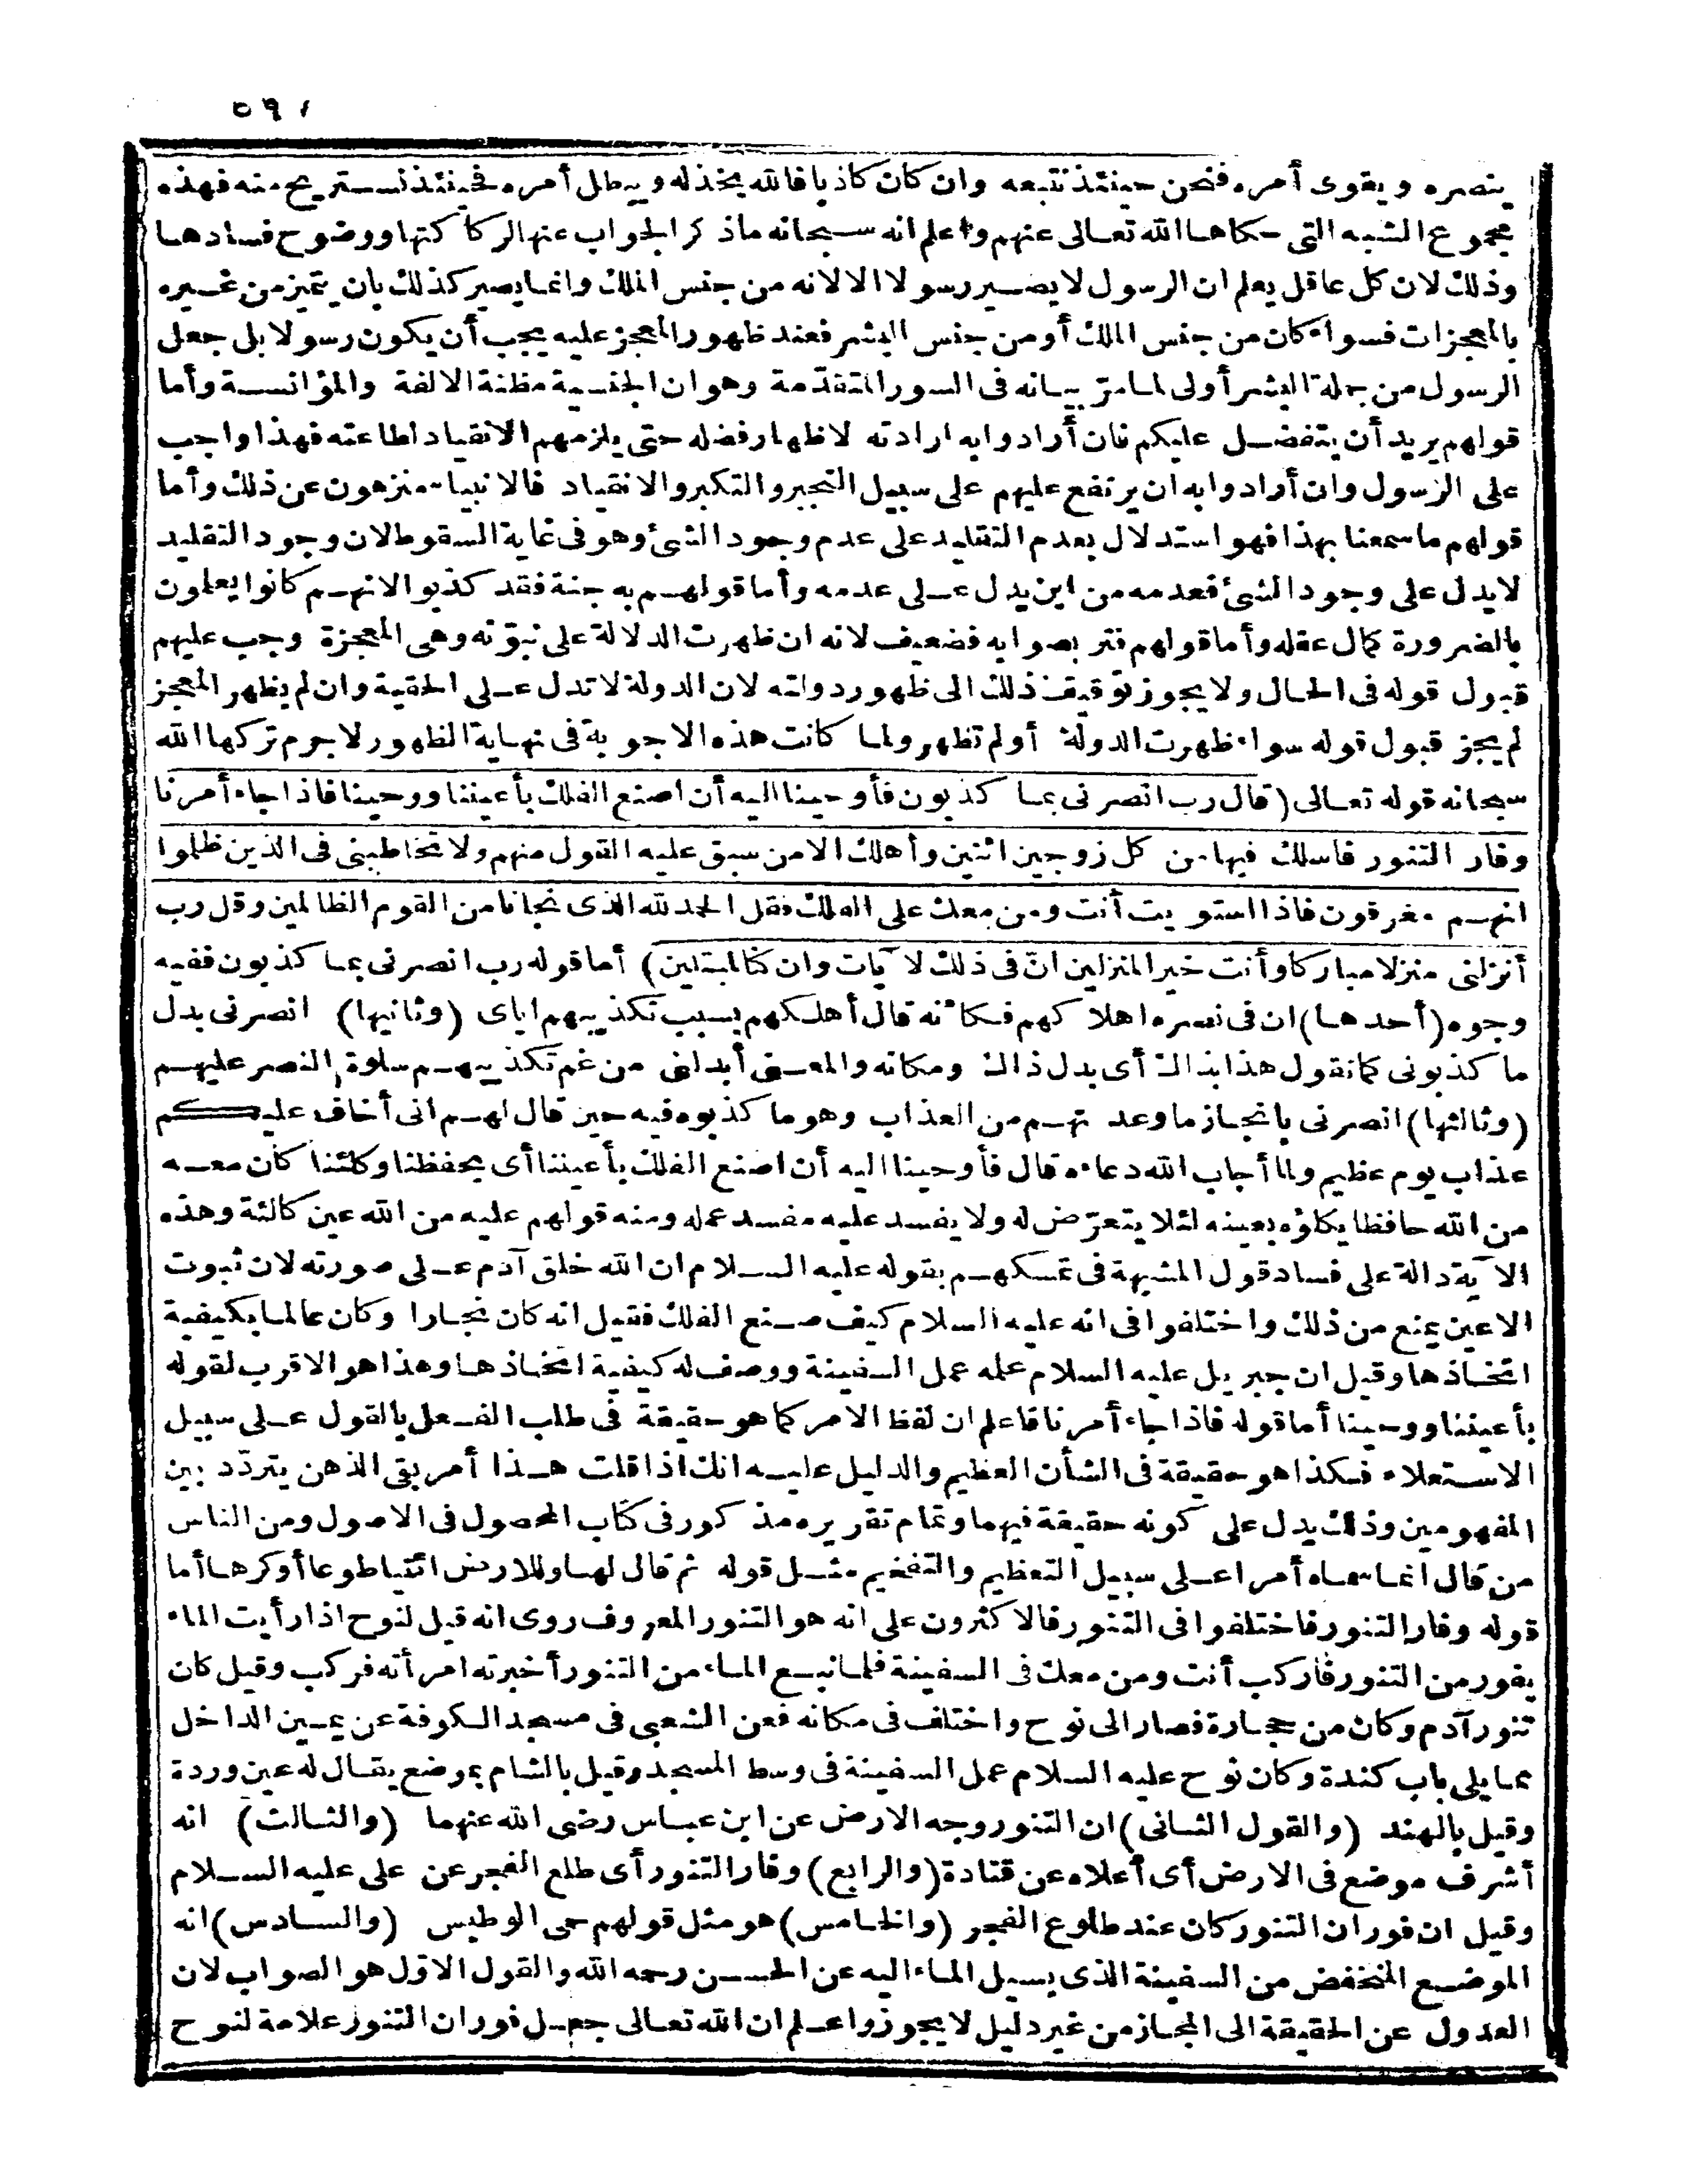 ٥٩١
ينصره ويقوى أمره فنحن حينئذ نتبعه وان كان كاذبا فالله يخذله ويبطل أمره فحينئذ نستريح منه فهذه
مجموع الشبه التى حكاها الله تعالى عنهم واعلم انه سبحانه ماذكر الجواب عنها لركاكتها ووضوح فسادها
وذلك لان كل عاقل يعلم ان الرسول لا يصير رسولا الا لانه من جنس الملك وانما يصير كذلك بان يتميز من غيره
بالمعجزات فسواء كان من جنس الملك أو من جنس البشر فعند ظهور المعجز عليه يجب أن يكون رسولا بل جعل
الرسول من جملة البشر أولى لما مرّ بيانه فى السور المتقدّمة وهو ان الجنسية مظنة الالفة والمؤانسة وأما
قولهم يريد أن يتفضل عليكم فان أرادوا به ارادته لاظهار فضله حتى يلزمهم الانقياد لطاعته فهذا واجب
على الرسول وان أرادوا به ان يرتفع عليهم على سبيل التجبر والتكبر والانقياد فالانبياء منزهون عن ذلك وأما
قولهم ما سمعنا بهذا فهو استدلال بعدم التقليد على عدم وجود الشئ وهو فى غاية السقوط لان وجود التقليد
لا يدل على وجود الشئ فعدمه من اين يدل على عدمه وأما قولهم به جنة فقد كذبوا لانهم كانوا يعلمون
بالضرورة كمال عقله وأما قولهم فتربصوا به فضعيف لانه ان ظهرت الدلالة على نبوّته وهى المعجزة وجب عليهم
قبول قوله فى الحال ولا يجوز توقيف ذلك الى ظهور دولته لان الدولة لا تدل على الحقية وان لم يظهر المعجز
لم يجز قبول قوله سواء ظهرت الدولة أو لم تظهر ولما كانت هذه الاجوبة فى نهاية الظهور لاجرم تركها الله
سبحانه قوله تعالى (قال رب انصرنى بما كذبون فأوحينا اليه أن اصنع الفلك بأعيننا ووحينا فاذا جاء أمرنا
وفار التنور فاسلك فيها من كل زوجين اثنين وأهلك الا من سبق عليه القول منهم ولا تخاطبنى فى الذين ظلموا
انهم مغرقون فاذا استويت أنت ومن معك على الفلك فقل الحمد لله الذى نجانا من القوم الظالمين وقل رب
أنزلنى منزلا مباركا وأنت خير المنزلين انّ فى ذلك لآيات وان كنا لمبتلين) أما قوله رب انصرنى بما كذبون ففيه
وجوه (أحدها) ان فى نصره اهلاكهم فكأنه قال أهلكهم بسبب تكذيبهم اياى (وثانيها) انصرنى بدل
ما كذبونى كما تقول هذا بذاك أى بدل ذاك ومكانه والمعنى أبدلنى من غم تكذيبهم سلوة النصر عليهم
(وثالثها) انصرنى بانجاز ما وعدتهم من العذاب وهو ما كذبوه فيه حين قال لهم انى أخاف عليكم
عذاب يوم عظيم ولما أجاب الله دعاءه قال فأوحينا اليه أن اصنع الفلك بأعيننا أى بحفظنا وكلئنا كأن معه
من الله حافظا يكلؤه بعينه لئلا يتعرّض له ولا يفسد عليه مفسد عمله ومنه قولهم عليه من الله عين كالئة وهذه
الآية دالة على فساد قول المشبهة فى تمسكهم بقوله عليه السلام ان الله خلق آدم على صورته لان ثبوت
الاعين يمنع من ذلك واختلفوا فى انه عليه السلام كيف صنع الفلك فقيل انه كان نجارا وكان عالما بكيفية
اتخاذها وقيل ان جبريل عليه السلام علمه عمل السفينة ووصف له كيفية اتخاذها وهذا هو الاقرب لقوله
بأعيننا ووحينا أما قوله فاذا جاء أمرنا فاعلم ان لفظ الامر كما هو حقيقة فى طلب الفعل بالقول على سبيل
الاستعلاء فكذا هو حقيقة فى الشأن العظيم والدليل عليه انك اذا قلت هذا أمر بقى الذهن يتردّد بين
المفهومين وذلك يدل على كونه حقيقة فيهما وتمام تقريره مذكور فى كتاب المحصول فى الاصول ومن الناس
من قال انما سماه أمرا على سبيل التعظيم والتفخيم مثل قوله ثم قال لها وللارض ائتيا طوعا أو كرها أما
قوله وفار التنور فاختلفوا فى التنور فالاكثرون على انه هو التنور المعروف روى انه قيل لنوح اذا رأيت الماء
يفور من التنور فاركب أنت ومن معك فى السفينة فلما نبع الماء من التنور أخبرته امرأته فركب وقيل كان
تنور آدم وكان من حجارة فصار الى نوح واختلف فى مكانه فعن الشعبى فى مسجد الكوفة عن يمين الداخل
مما يلى باب كندة وكان نوح عليه السلام عمل السفينة فى وسط المسجد وقيل بالشام بموضع يقال له عين وردة
وقيل بالهند (والقول الثانى) ان التنور وجه الارض عن ابن عباس رضى الله عنهما (والثالث) انه
أشرف موضع فى الارض أى أعلاه عن قتادة (والرابع) وفار التنور أى طلع الفجر عن على عليه السلام
وقيل ان فوران التنور كان عند طلوع الفجر (والخامس) هو مثل قولهم حمى الوطيس (والسادس) انه
الموضع المنخفض من السفينة الذى يسيل الماء اليه عن الحسن رحمه الله والقول الاوّل هو الصواب لان
العدول عن الحقيقة الى المجاز من غير دليل لا يجوز واعلم ان الله تعالى جعل فوران التنور علامة لنوح